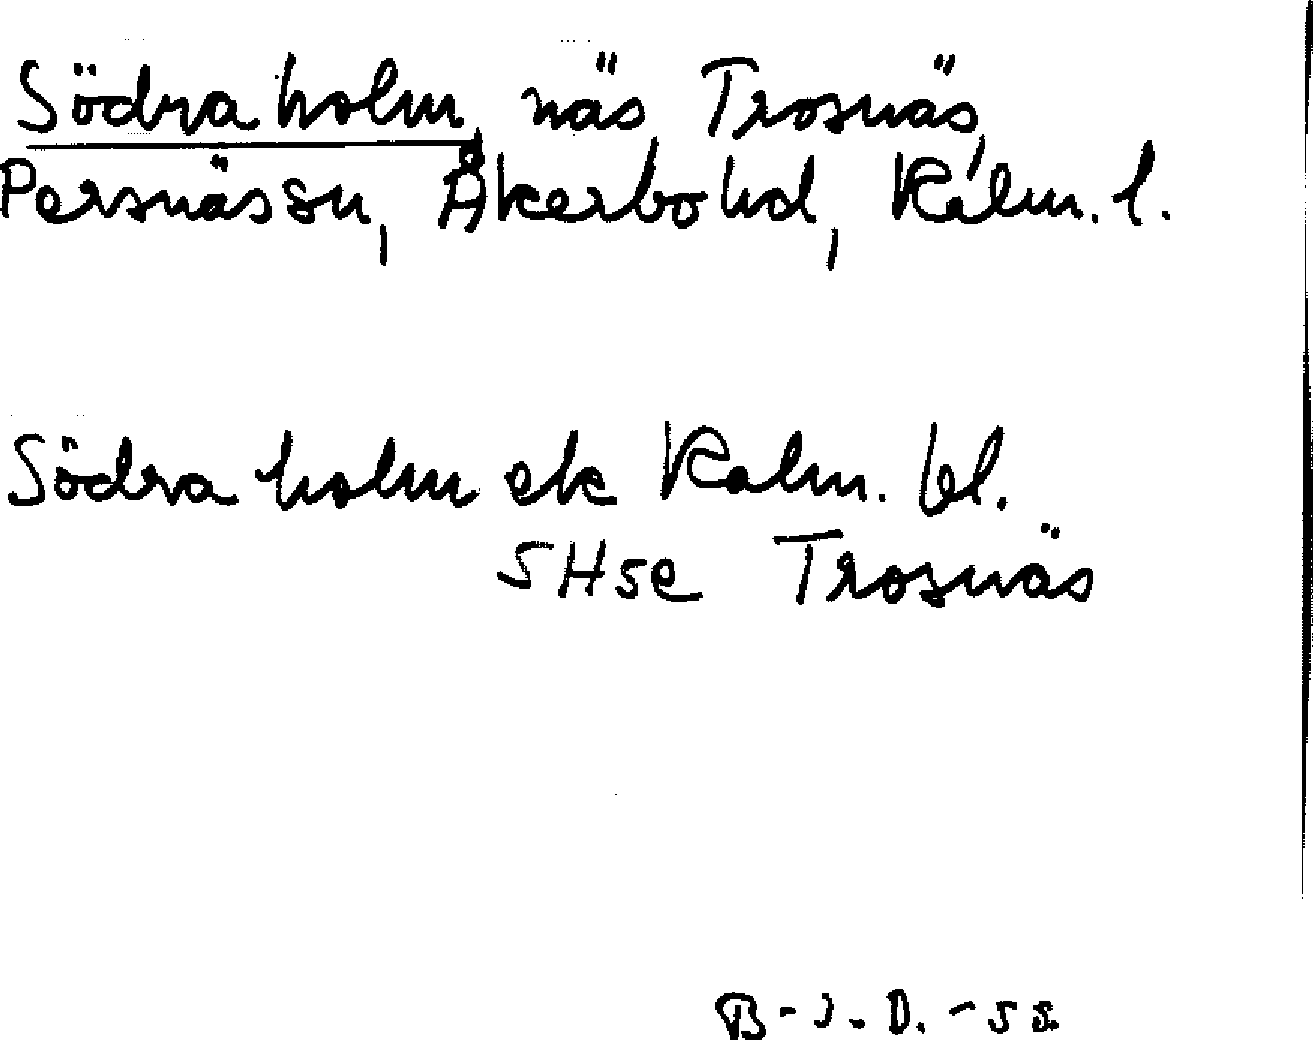 Södra holm, näs, Trosnäs,
Persnäs sn, Åkerbo hd, Kalm. l.
Södra holm ek Kalm. bl.
SHse Trosnäs
B-J.D.-58.